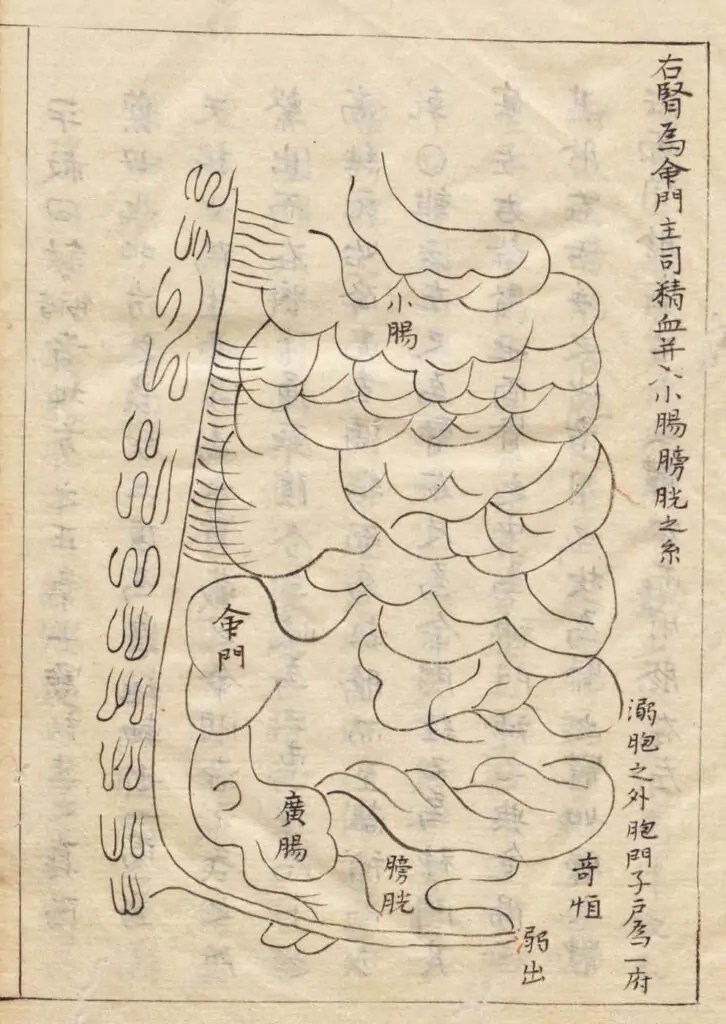 右腎爲命門主司精血并入小腸膀胱之系
溺胞之外胞門子戶爲一府
奇恒
溺出
小腸
膀胱
廣腸
命門